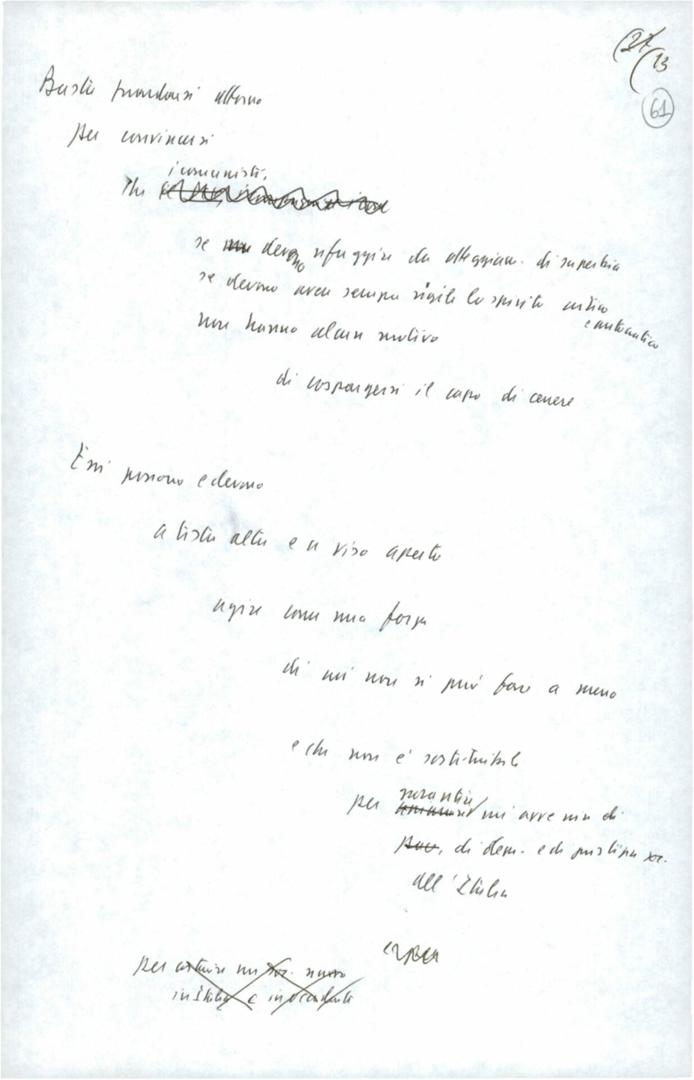 (37/
(13
61
Basta guardarsi attorno
per convincersi
i comunisti,
che
se devono rifuggire da atteggiam. di superbia
se devono aver sempre vigile lo spirito critico
e autocritico
non hanno alcun motivo
di cospargersi il capo di cenere
Essi possono e devono
a testa alta e a viso aperto
agire come una forza
di cui non si può fare a meno
e che non è sostituibile
per garantire un avvenire di
pace, di dem. e di giustizia soc.
all'Italia
per costruire un soc. nuovo
in Italia e in occidente